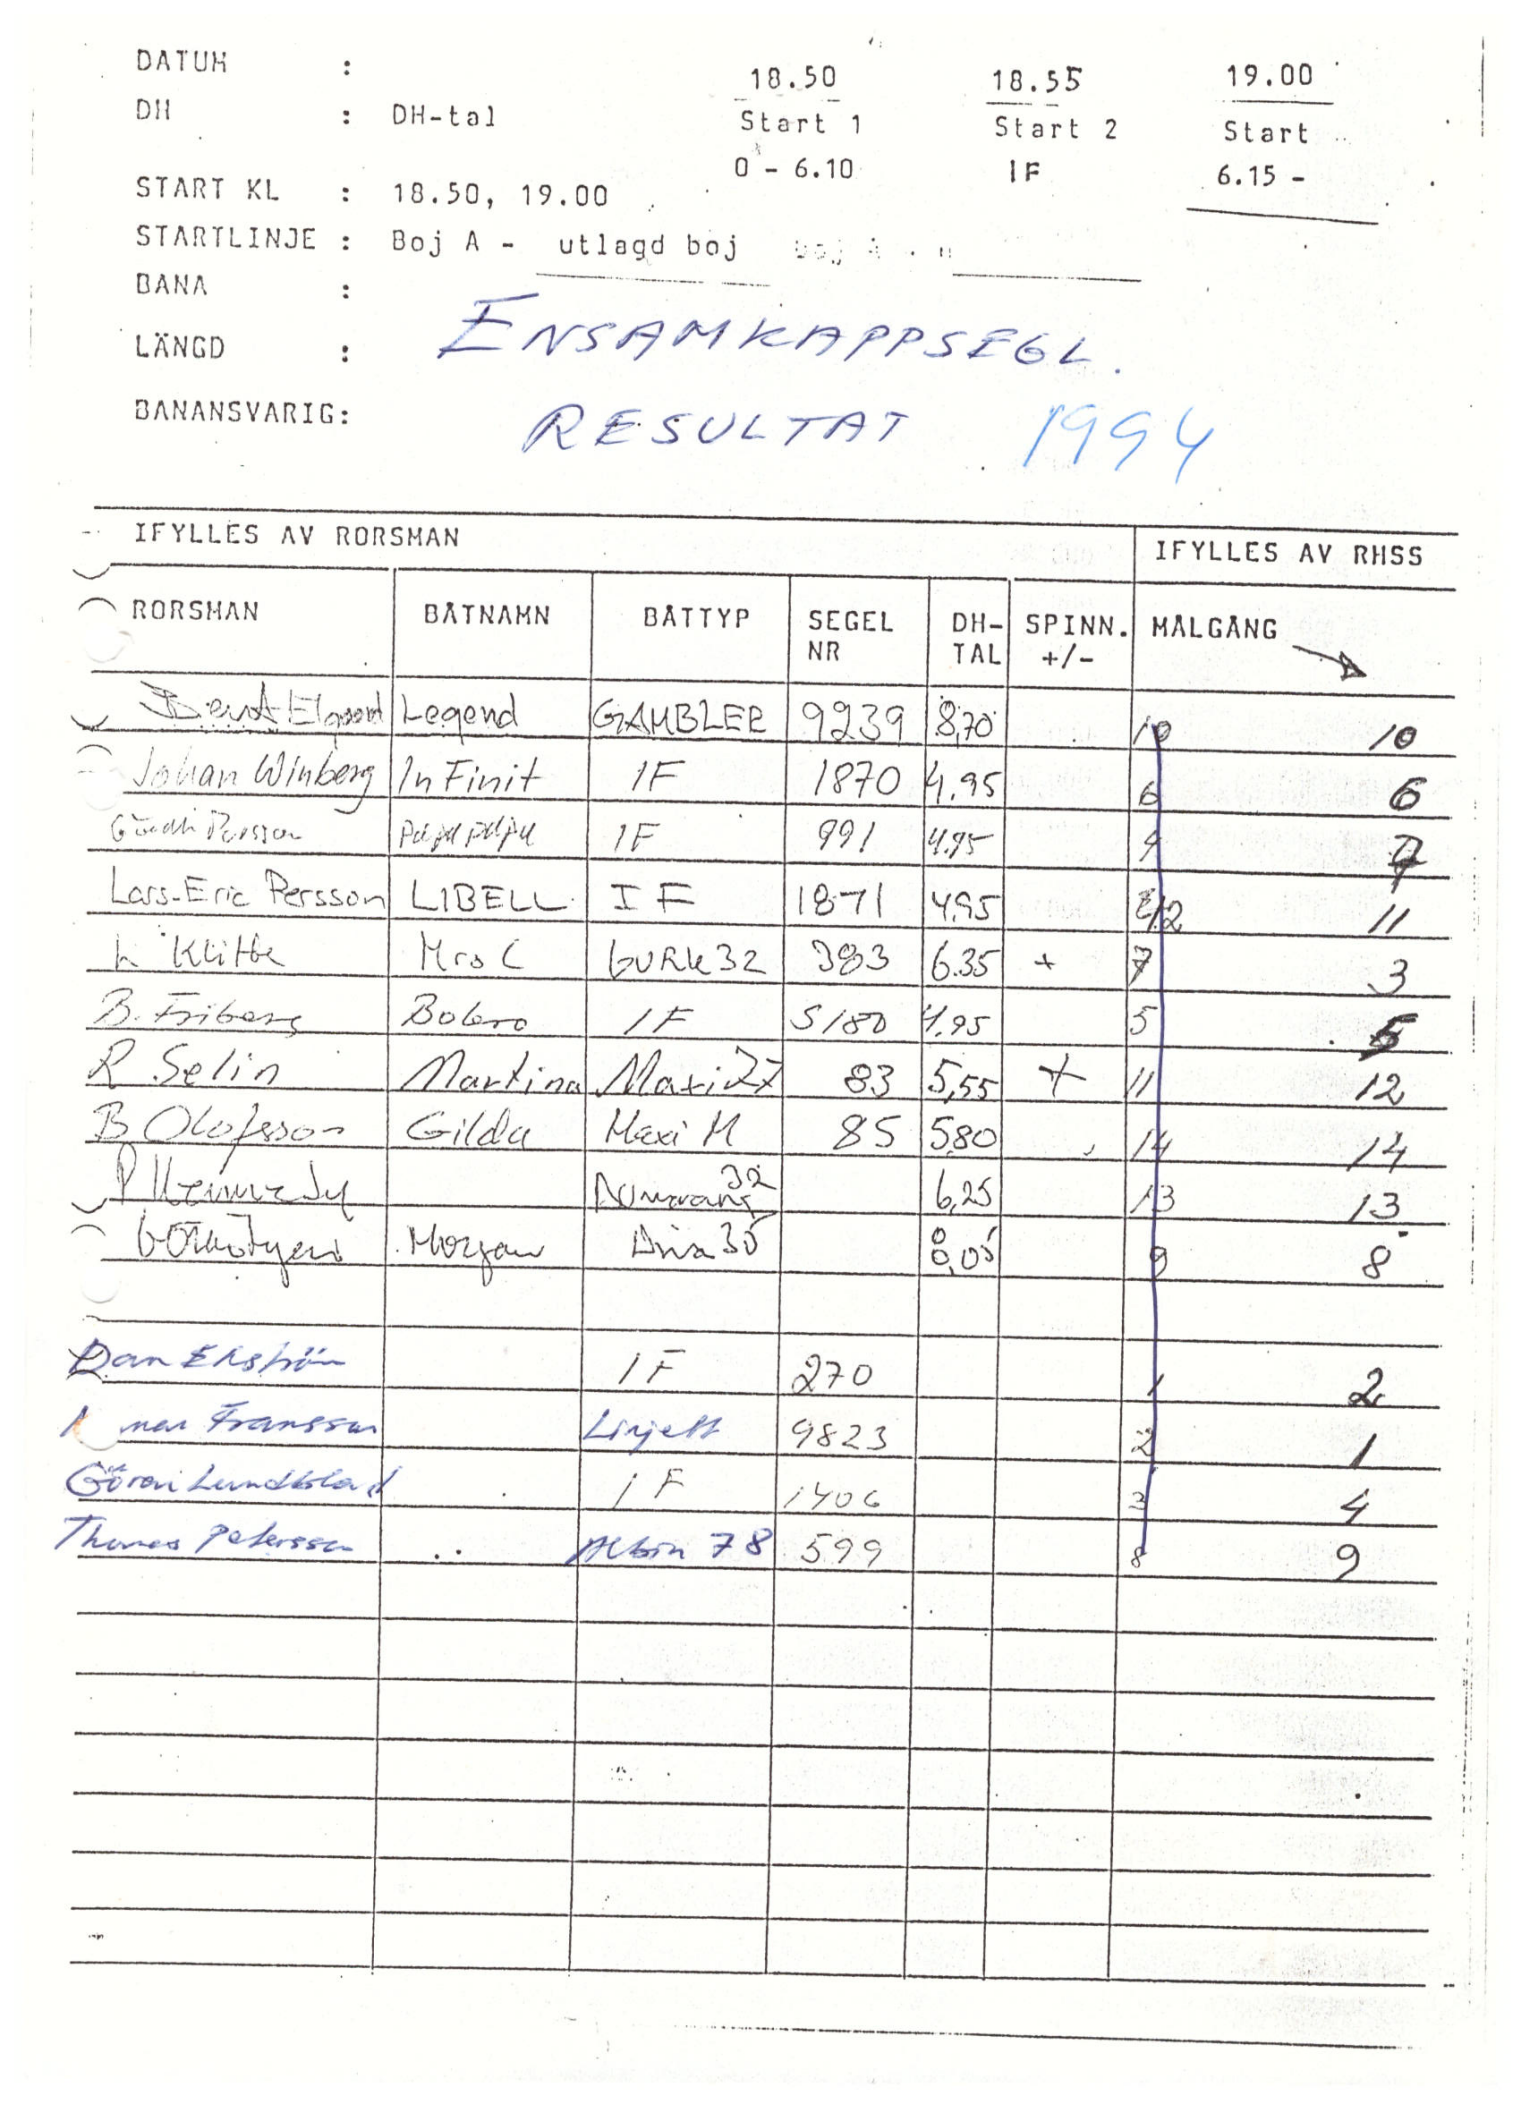 DATUM :
18.50 18.55 19.00
DH : DH-tal Start 1 Start 2 Start
0 - 6.10 IF 6.15 -
START KL : 18.50, 19.00
STARTLINJE : Boj A - utlagd boj
BANA :
LÄNGD : ENSAMKAPPSEGL.
BANANSVARIG: RESULTAT 1994
IFYLLES AV RORSMAN IFYLLES AV RHSS
RORSMAN BÅTNAMN BÅTTYP SEGEL NR DH-TAL SPINN. +/- MÅLGÅNG
Legend GAMBLER 9239 8,70 10 10
Johan Winberg In Finit IF 1870 4.95 6 6
Persson papapapa IF 991 4.95 4 7
Lars-Eric Persson LIBELL IF 1871 4,95 12 11
L Klitte Mrs C GURK 32 383 6.35 + 7 3
B. Friberg Bolero IF S180 4.95 5 5
R Selin Martina Maxi 27 83 5,55 + 11 12
B Olofsson Gilda Maxi M 85 5,80 14 14
P 32 6,25 13 13
Morgan 9 8
Dan Ekström IF 270 1 2
Franssun Linjett 9823 2 1
Göran Lundblad IF 1406 3 4
Thomas Petersson Albin 78 599 8 9